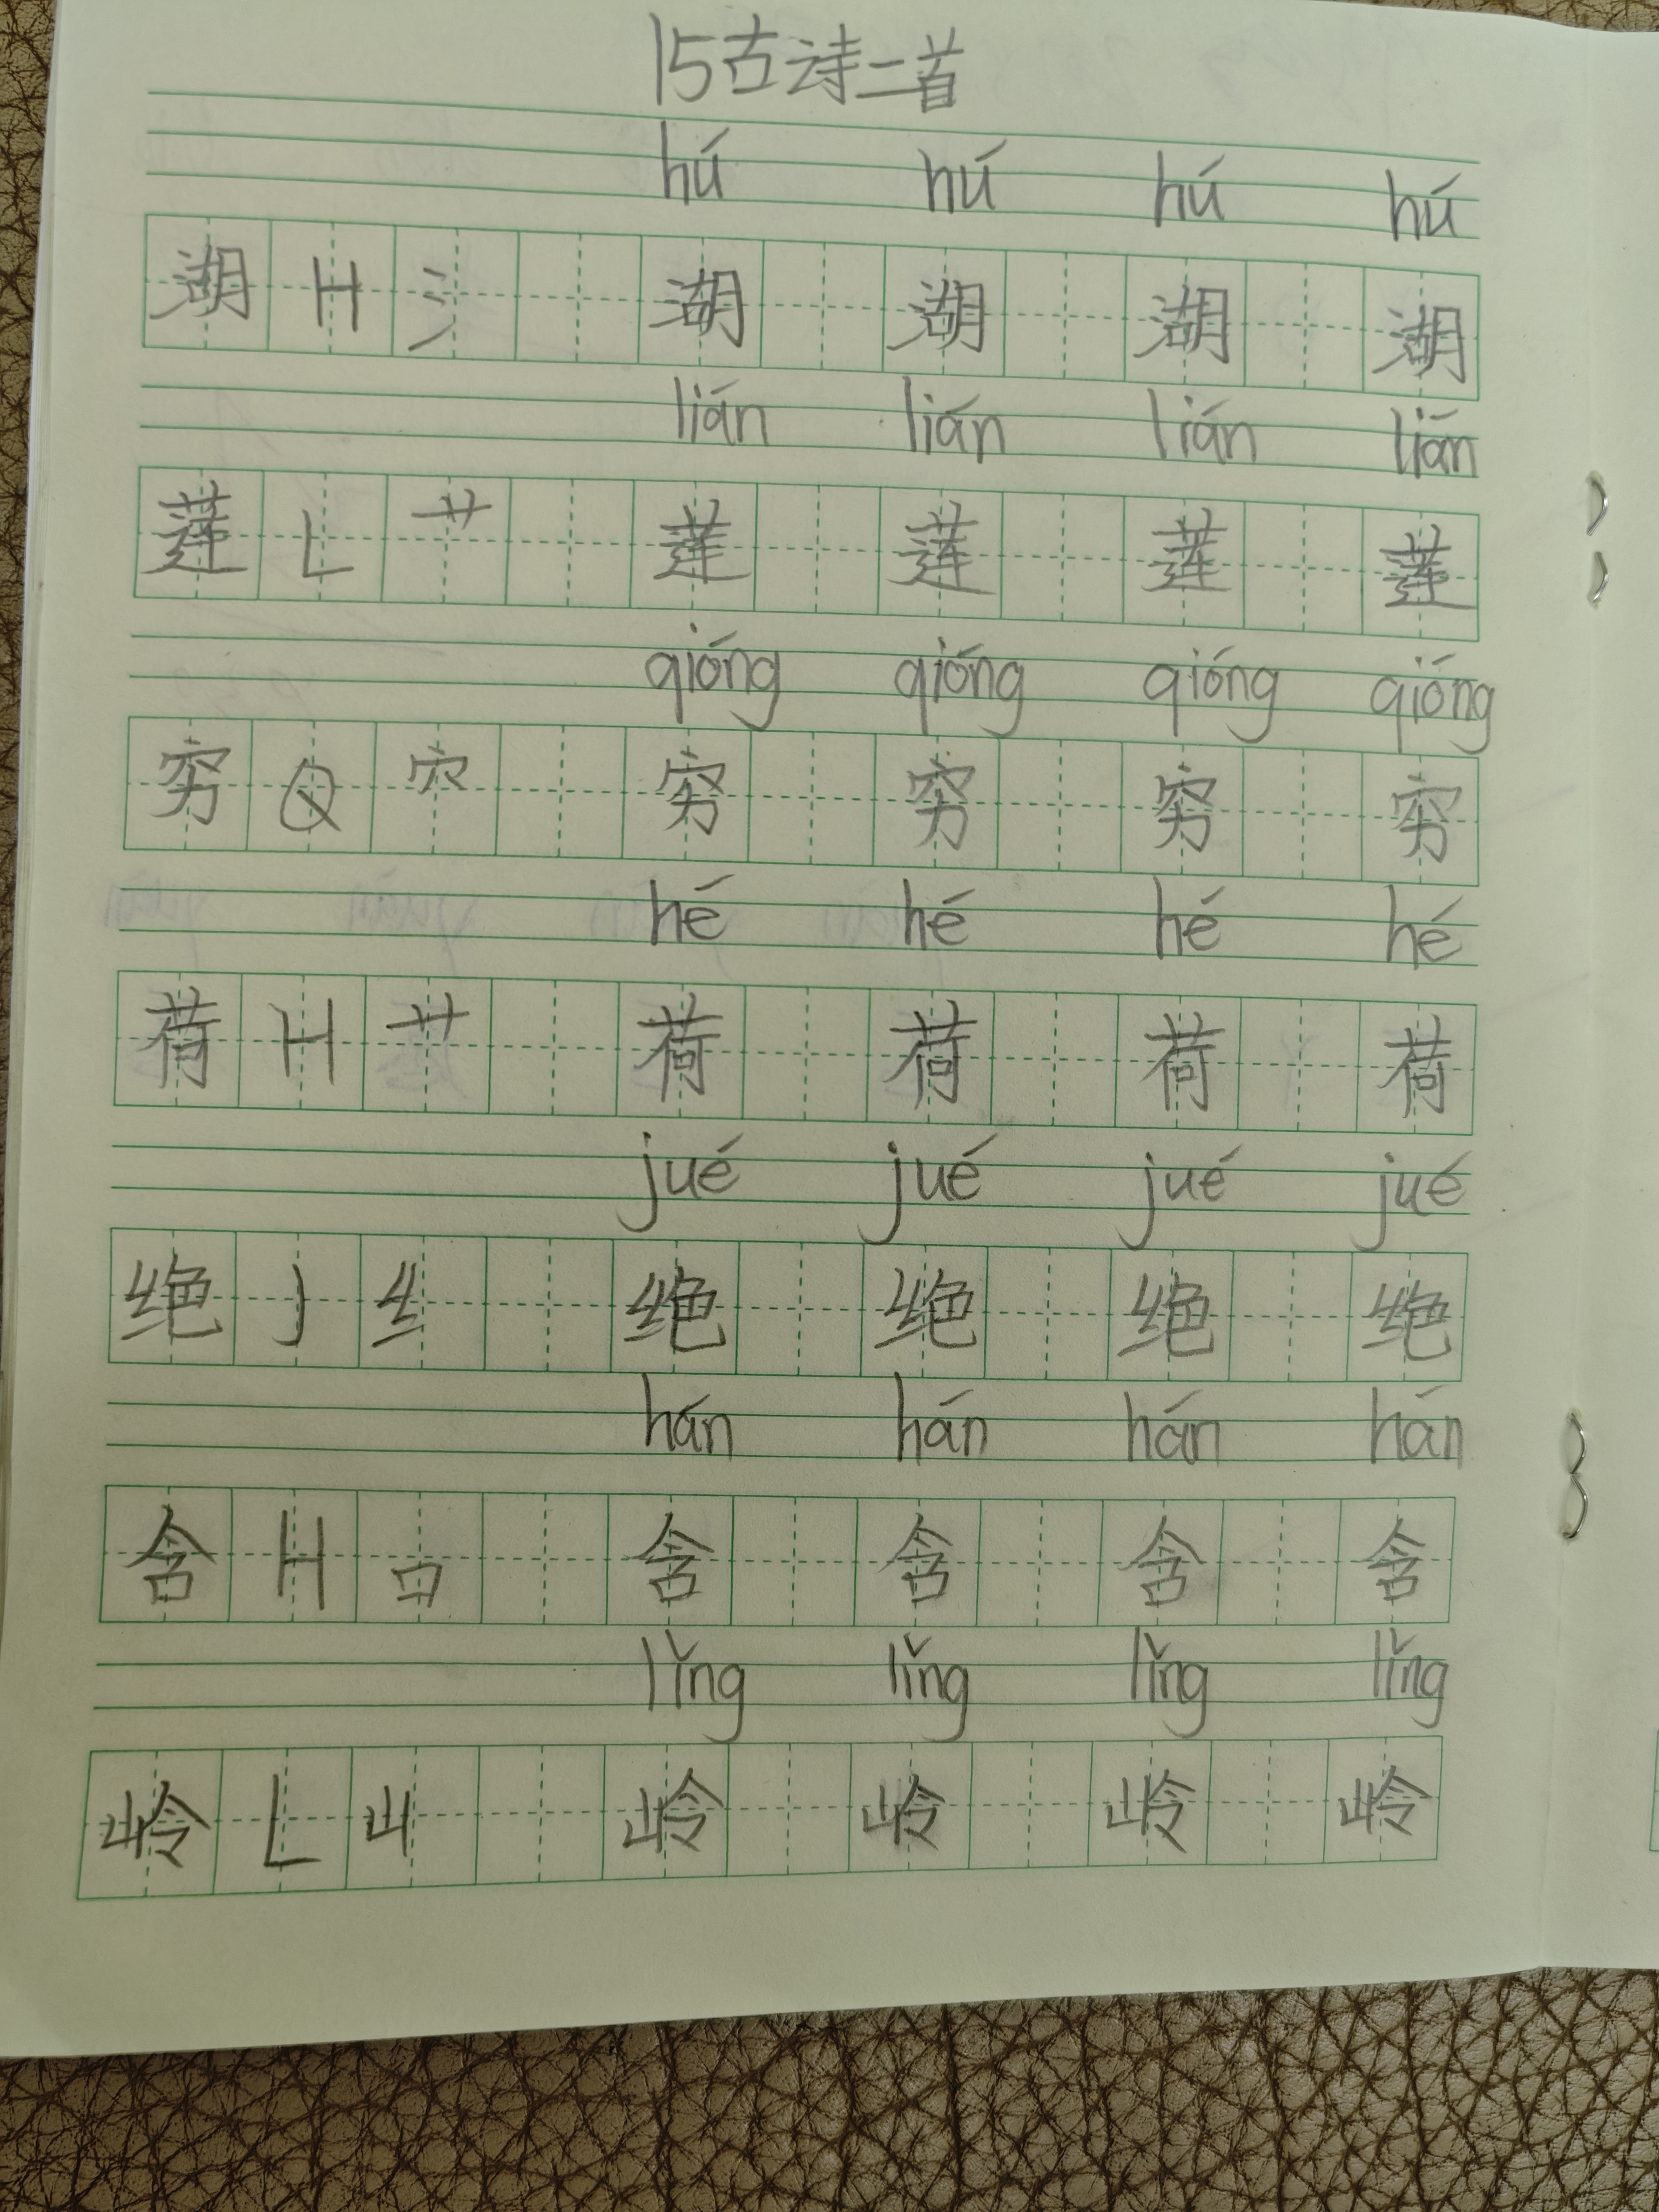 15古诗二首
hú hú hú hú
湖 H 氵 湖 湖 湖 湖
lián lián lián lián
莲 L 艹 莲 莲 莲 莲
qióng qióng qióng qióng
穷 Q 穴 穷 穷 穷 穷
hé hé hé hé
荷 H 艹 荷 荷 荷 荷
jué jué jué jué
绝 J 纟 绝 绝 绝 绝
hán hán hán hán
含 H 口 含 含 含 含
lǐng lǐng lǐng lǐng
岭 L 山 岭 岭 岭 岭